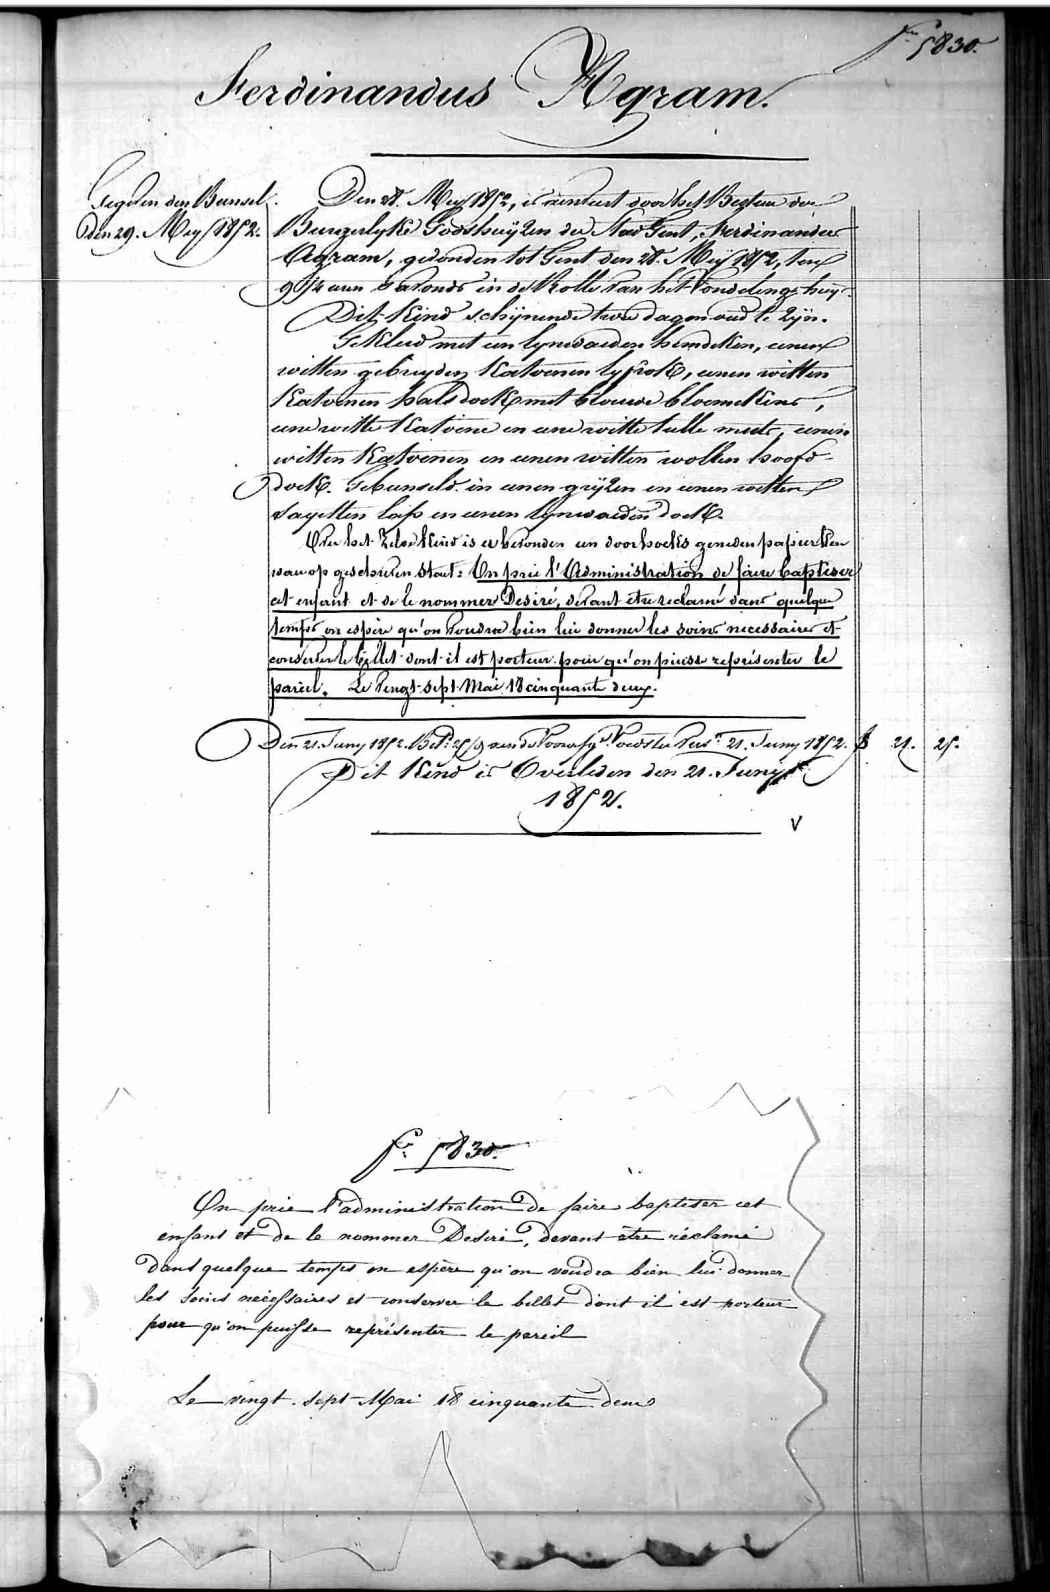 fo 5830.
Ferdinandus Agram.
Gegeven den Bunsel.
den 29. Mey 1852.
Den 28. Mey 1852, is
door het Bestuer der
Burgerlyke Godshuyzen der Stad Gent, Ferdinandus
Agram, gevonden tot Gent den 28. Mey 1852, ten
9 1/4 uren 's avonds in de Rolle van het Vondelingshuys.
Dit Kind schijnende twee dagen oud te zijn.
Gekleed met een lynwaeden hemdeken, eenen
witten gebreyden Katoenen lyfrok, eenen witten
Katoenen halsdoek met blauwe bloemekens,
eene witte Katoene en eene witte tulle muts, eenen
witten Katoenen en eenen witten wollen hoofd-
doek. Gebunseld in eenen grijzen en eenen witten
sayetten lap en eenen lynwaeden doek.
Over het zelve Kind is er bevonden een doorhoekts gesneden papierken
waer op geschreven staet: On prie l'Administration de faire baptiser
cet enfant et de le nommer Desiré, devant être reclamé dans quelque
temps on espère qu'on voudra bien lui donner les soins necessaires et
conserver le billet dont il est porteur pour qu'on puisse représenter le
pareil. Le vingt-sept Mai 18 cinquante deux.
Den 21. Juny 1852. Bet. 25/9 aen de Voorsz. Voedster
21. Juny 1852. 21. 25.
Dit Kind is Overleden den 21. Juny
1852.
V
fo 5830.
On prie l'administration de faire baptiser cet
enfant et de le nommer Desiré, devant être réclamé
dans quelque temps on espère qu'on voudra bien lui donner
les soins necessaires et conserver le billet dont il est porteur
pour qu'on puisse représenter le pareil
Le vingt-sept Mai 18 cinquante deux